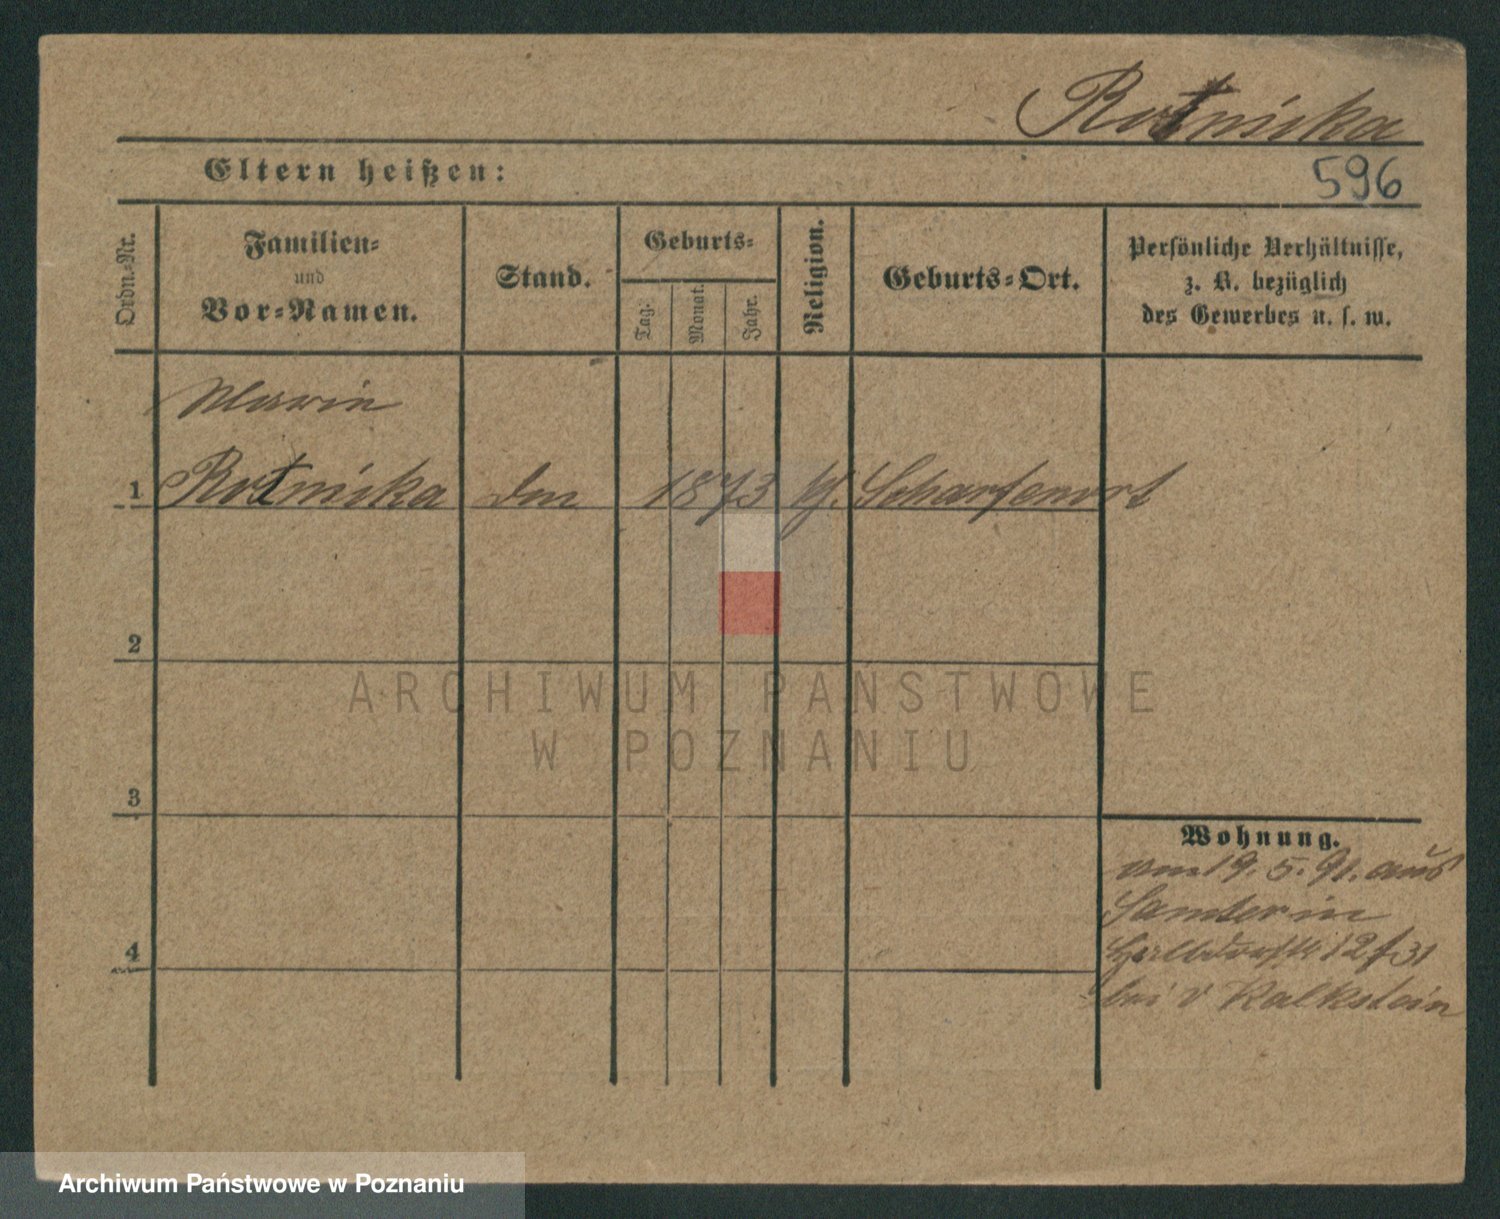 Rotnicka
Eltern heißen:
596
Ordn.-Nr.
Familien-
und
Vor-Namen.
Stand.
Geburts-
Tag.
Monat.
Jahr.
Religion.
Geburts-Ort.
Persönliche Verhältnisse,
z. B. bezüglich
des Gewerbes u. s. w.
Marie
1 Rotnicka 1873 Scharfenort
2
ARCHIWUM PAŃSTWOWE
W POZNANIU
3
Wohnung.
19. 5. 91. aus
Samter in
4
12 f 31
bei v Kalkstein
Archiwum Państwowe w Poznaniu